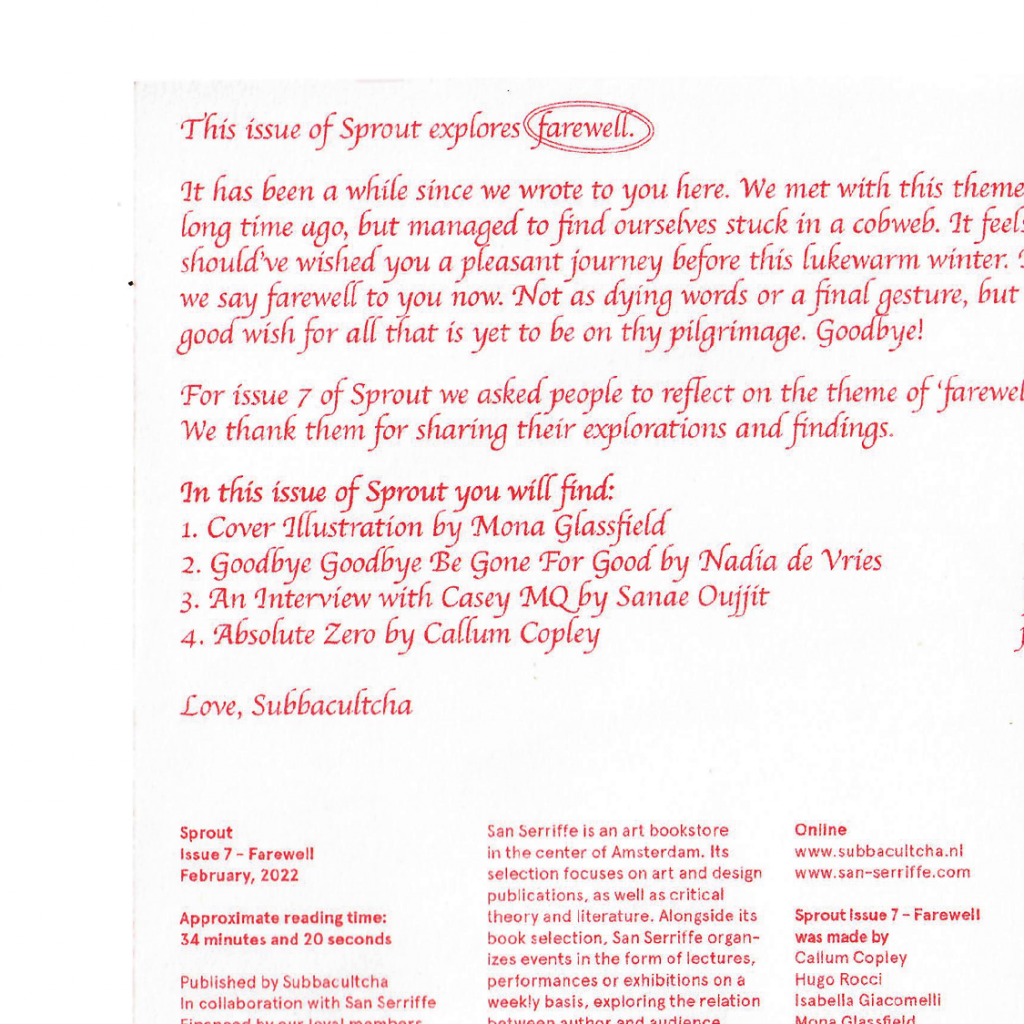 This issue of Sprout explores farewell.
It has been a while since we wrote to you here. We met with this theme
long time ago, but managed to find ourselves stuck in a cobweb. It feels
should've wished you a pleasant journey before this lukewarm winter.
we say farewell to you now. Not as dying words or a final gesture, but
good wish for all that is yet to be on thy pilgrimage. Goodbye!
For issue 7 of Sprout we asked people to reflect on the theme of 'farewel
We thank them for sharing their explorations and findings.
In this issue of Sprout you will find:
1. Cover Illustration by Mona Glassfield
2. Goodbye Goodbye Be Gone For Good by Nadia de Vries
3. An Interview with Casey MQ by Sanae Oujjit
4. Absolute Zero by Callum Copley
Love, Subbacultcha
Sprout
Issue 7 – Farewell
February, 2022
Approximate reading time:
34 minutes and 20 seconds
Published by Subbacultcha
In collaboration with San Serriffe
Financed by our loyal members
San Serriffe is an art bookstore
in the center of Amsterdam. Its
selection focuses on art and design
publications, as well as critical
theory and literature. Alongside its
book selection, San Serriffe organ-
izes events in the form of lectures,
performances or exhibitions on a
weekly basis, exploring the relation
between author and audience
Online
www.subbacultcha.nl
www.san-serriffe.com
Sprout Issue 7 – Farewell
was made by
Callum Copley
Hugo Rocci
Isabella Giacomelli
Mona Glassfield